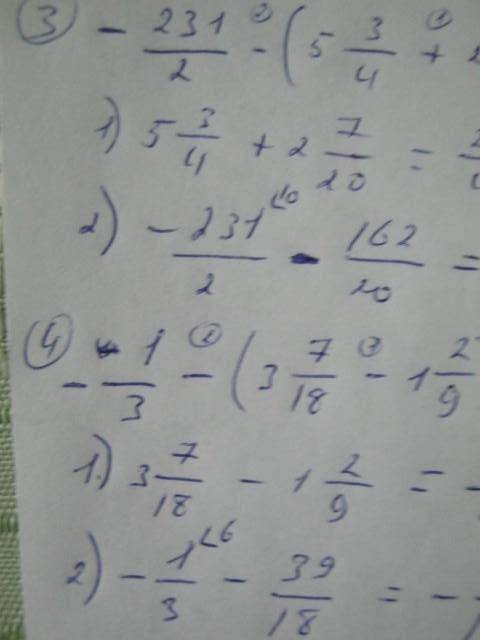 ③ - 231/2 - (5 3/4 +
1) 5 3/4 + 2 7/20 =
2) - 231/2 - 162/20 =
④ - 1/3 - (3 7/18 - 1 2/9
1.) 3 7/18 - 1 2/9 =
2) - 1/3 - 39/18 = -